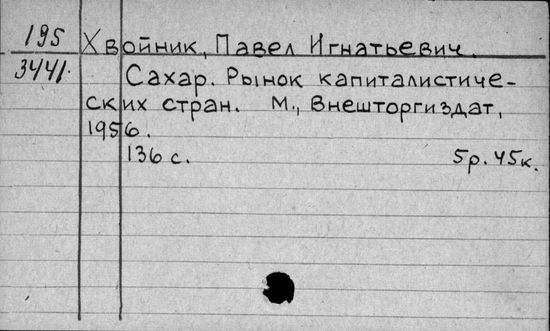 195
3441.
Хвойник, Павел Игнатьевич.
Сахар. Рынок капиталистиче-
ских стран. М., Внешторгиздат,
1956.
136 с. 5р. 45к.